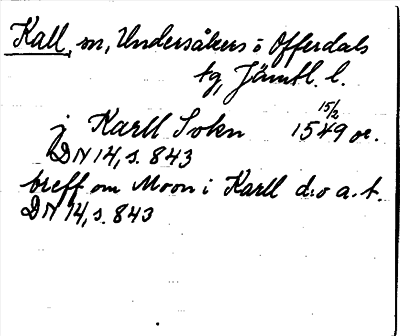 Kall, sn, Undersåkers o Offerdals
tg, Jämtl. l.
j Karll Sokn 15 15/2 49 or.
DN 14, s. 843
breff om Moon i Karll d:o a. t.
DN 14, s. 843